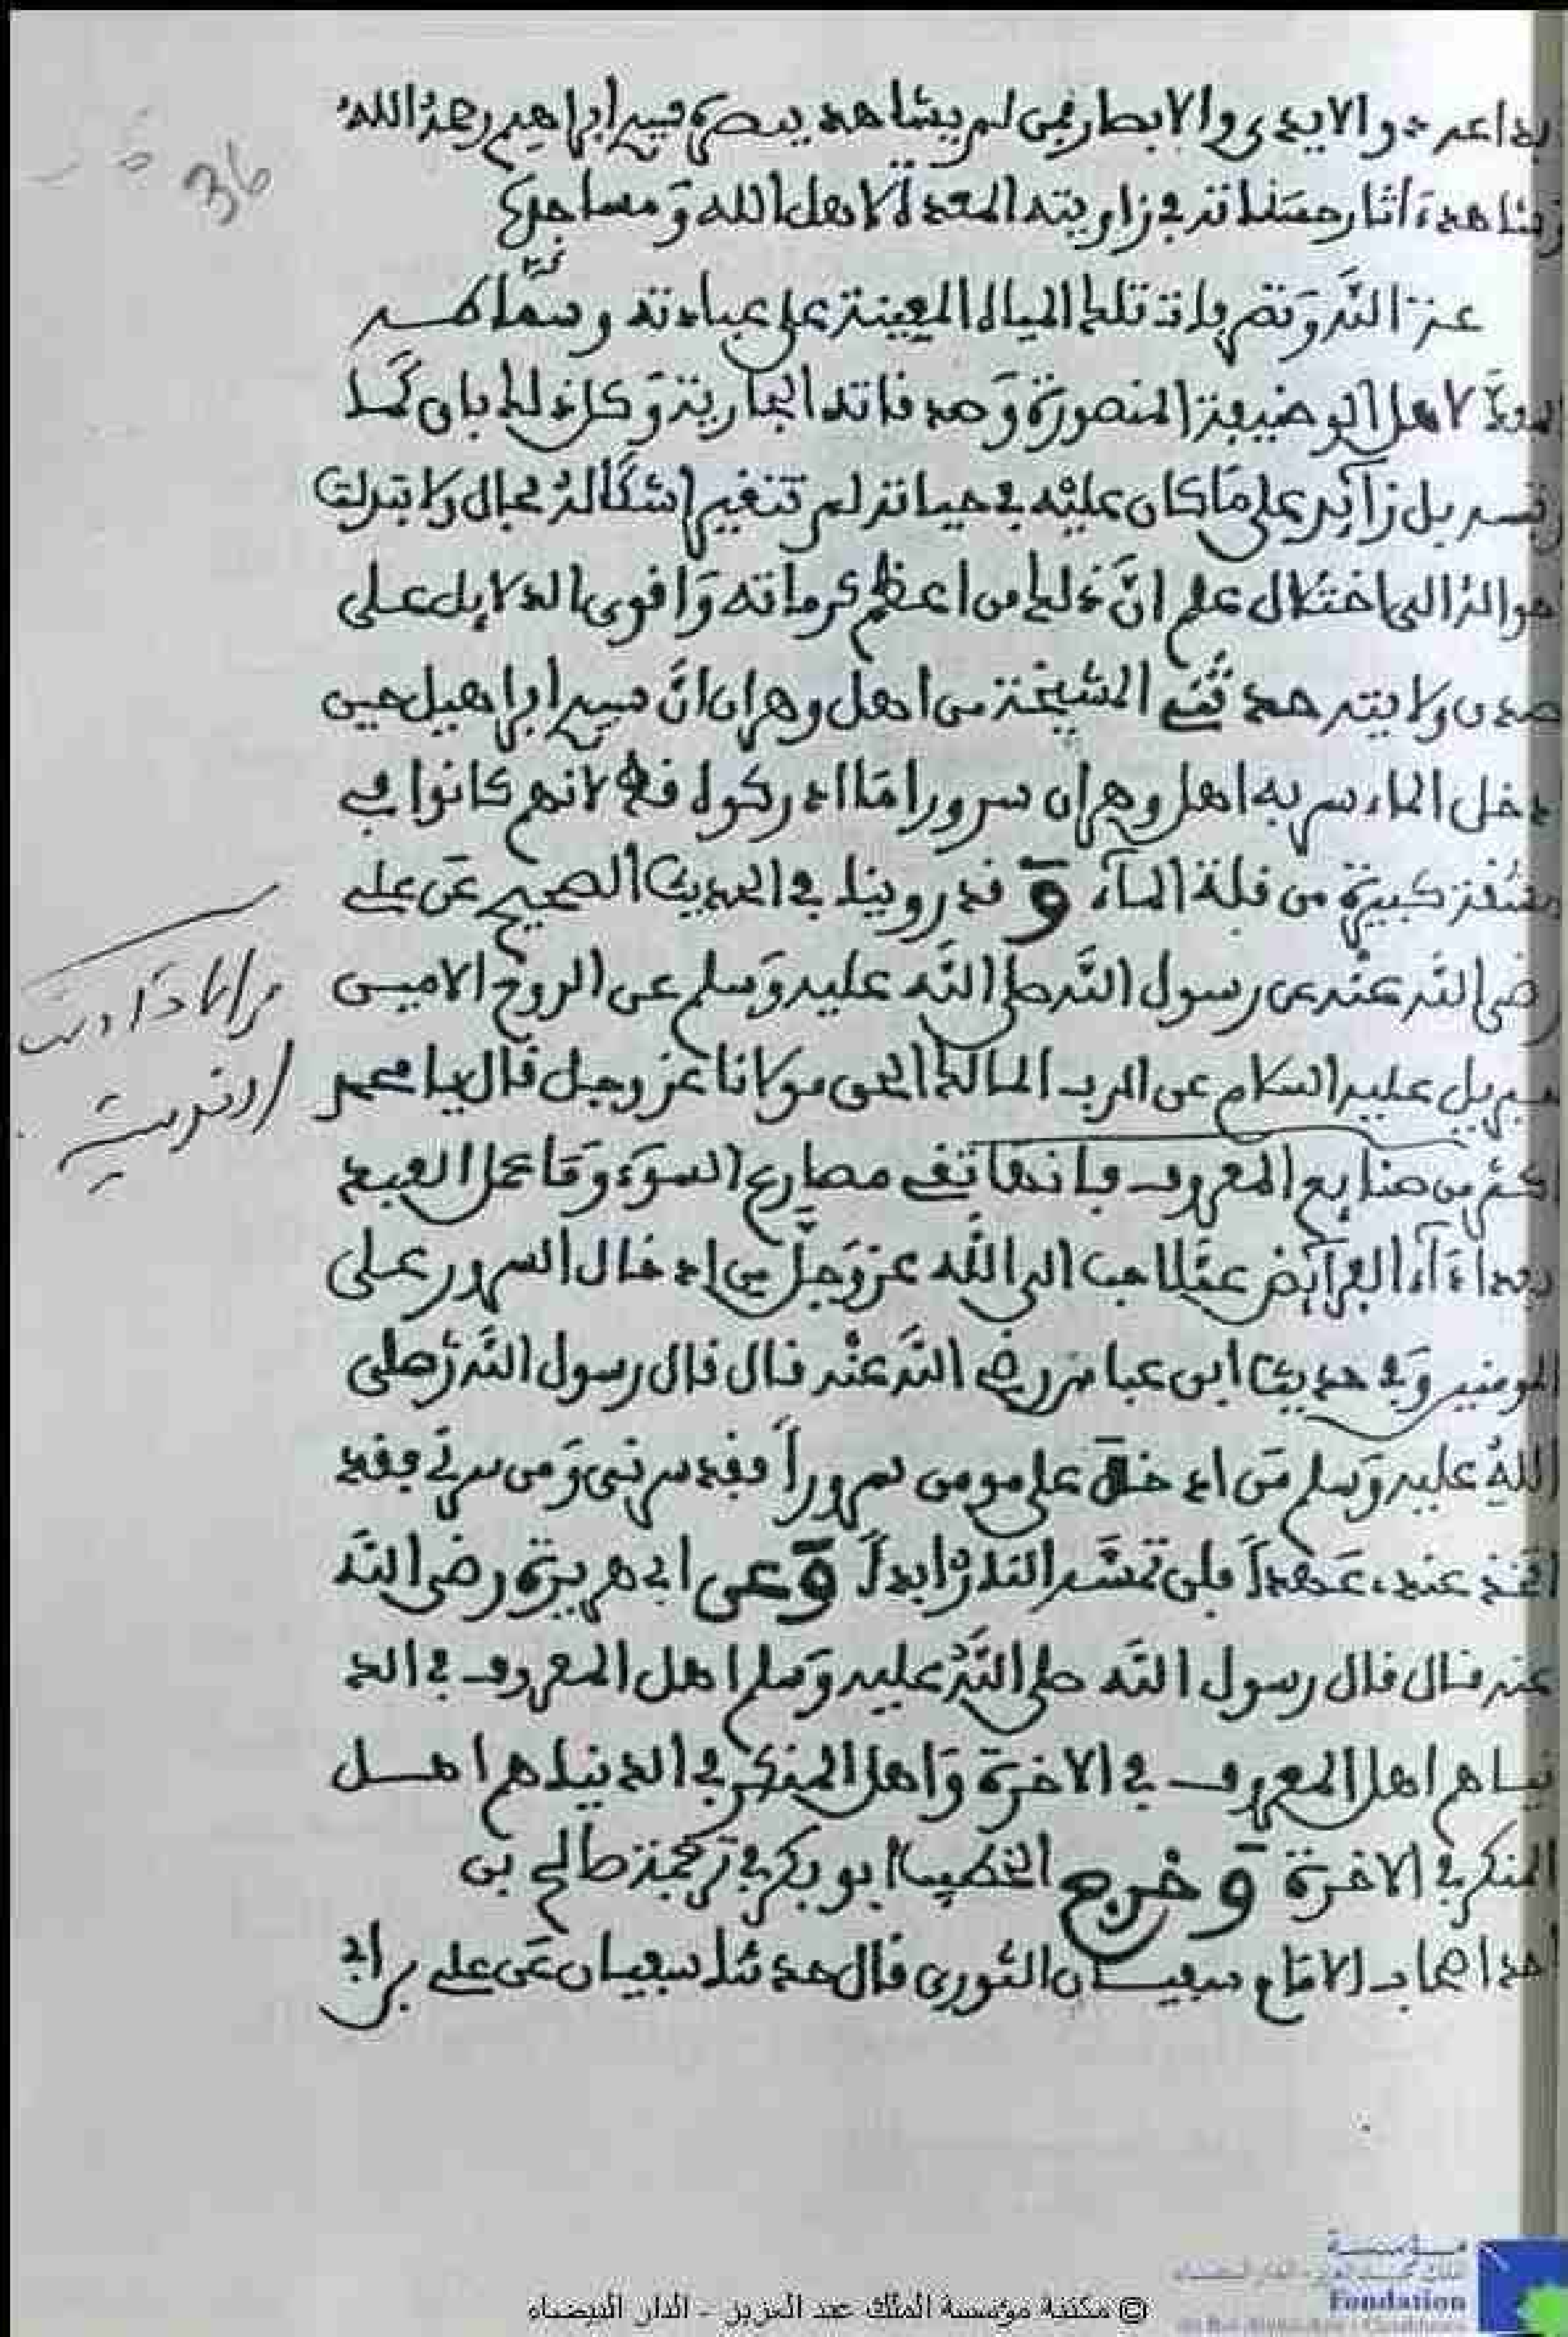 ذو الايدى والابصار فمن لم يشاهد ببصره سيدى ابراهيم رحمهُ اللهُ
وشاهدَ آثار حسناته في زاويته المعدة لاهل الله وَمساجده
عزة الله وَتصرفاته تلك المياه المعينة على عبادته
لاهل الوضيعة المنصورة وَصدقاته الجارية وَكل ذلك باق كما
بل زايد على مَا كان عليْه في حياته لم تتغير اشكالهُ بحال ولا تبدلت
الى اختلال علم انَّ ذلك من اعظم كرماته وَاقوى الدلايل على
صدق ولايته حدثنى المشيخة من اهل وهران انَّ سيدى ابراهيم حين
دخل الماء سر به اهل وهران سرورا مَا ادركوه قط لانهم كانوا في
مشقة كبيرة من قلة المآء وَ قد روينا في الحديث الصحيح عَن على
رضى الله عنْه عن رسول الله صلى الله عليه وَسلم عن الروح الامين
جبريل عليه السلام عن الرب المالك الحق مولانا عز وجل قال يا محمد
اكثر من صنايع المعروف فانها تقى مصارع السوَء وَمَا عمل العبد
بعد اداء الفرآيض عملا احب الى الله عز وَجلَّ من ادخال السرور على
المومنين وَفي حديث ابن عباس رضى الله عنْه قال قال رسول الله صلى
اللهُ عليه وَسلم مَن ادخل على مومن سروراً فقد سرنى وَمن سرني فقد
اتخذ عند عَهداً فلن تمسَّه النارُ ابداً وَعن ابي هريرة رضى الله
عنه قال قال رسول الله صلى اللهُ عليه وَسلم اهل المعروف في الد
نيا هم اهل المعروف في الاخرة وَاهل المنكر في الدنيا هم اهل
المنكر في الاخرة وَخرج الخطيب ابو بكر في ترجمة صالح بن
احد اصحاب الامَام سفيان الثورى قال حدثنا سفيان عَن على بن ابى
36
© مكتبة مؤسسة الملك عبد العزيز - الدار البيضاء
مؤسسة
Fondation